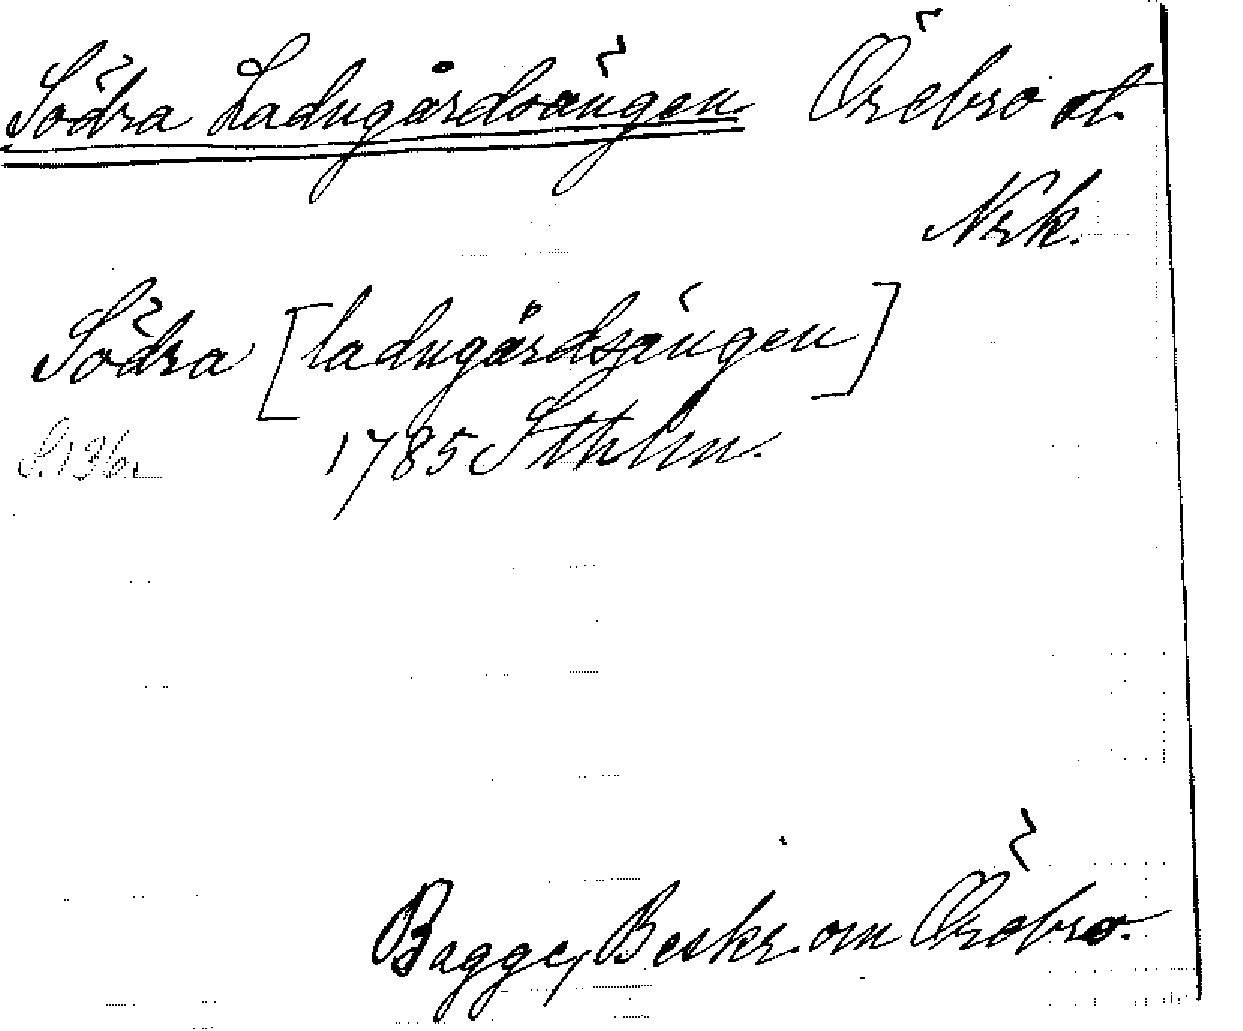 Södra Ladugårdsängen Örebro st.
Nrk.
Södra [ladugårdsängen]
S. 136. 1785 Sthlm.
Bagge, Beskr. om Örebro.